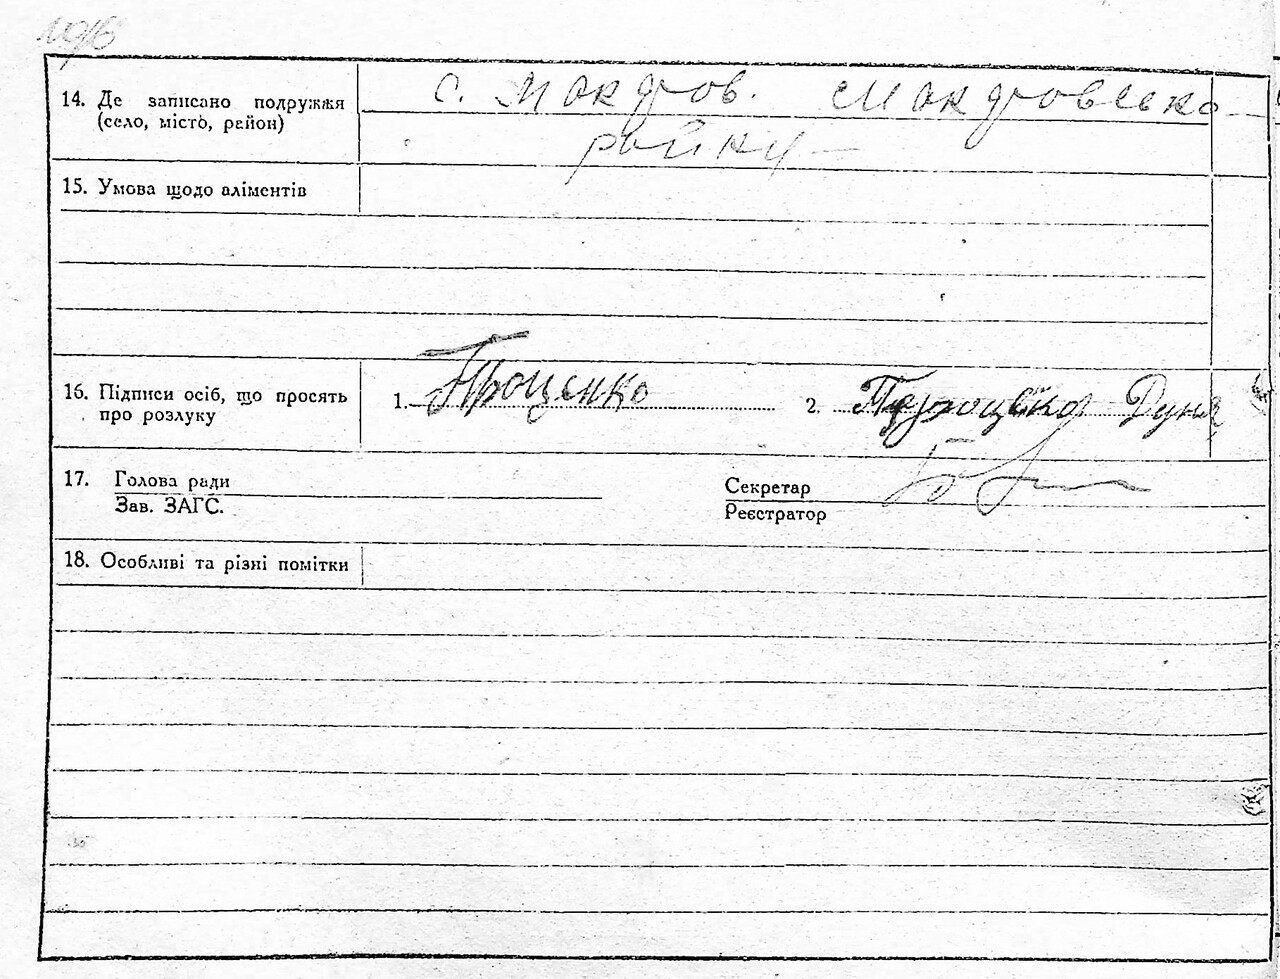 14. Де записано подружжя
(село, місто, район)
с. Макров. Макровсько
району
15. Умова щодо аліментів
16. Підписи осіб, що просять
про розлуку
1. Проценко 2. Проценко Дуня
17. Голова ради
Зав. ЗАГС.
Секретар
Реєстратор
18. Особливі та різні помітки